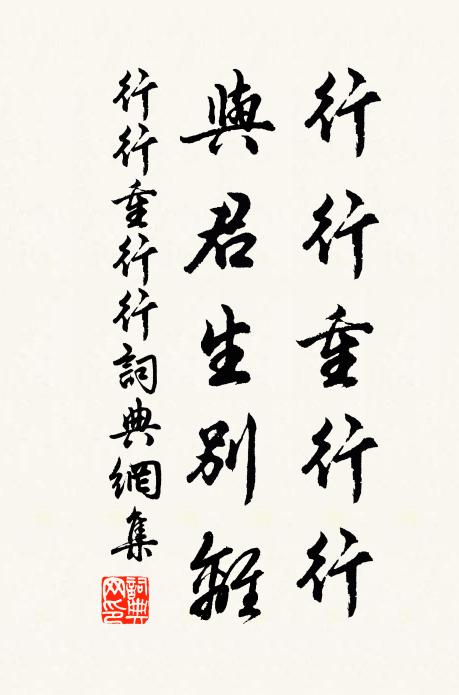 行行重行行
與君生別離
行行重行行詞典網集
詞典
網印